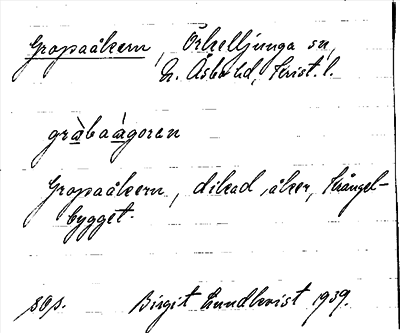 Gropaåkern, Örkelljunga sn,
N. Åsbo hd, Krist. l.
gràbaágoren
Gropaåkern, dikad åker, Krångel-
bygget.
sös.
Birgit Lundkvist 1939.